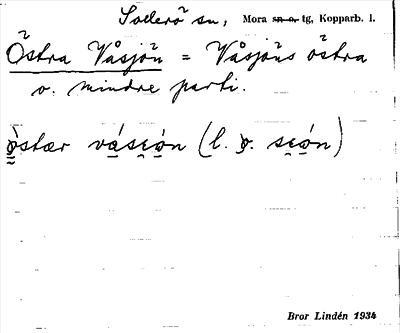 Sollerö sn, Mora sn o. tg, Kopparb. l.
Östra Våsjön = Våsjöns östra
o. mindre parti.
òstær vásión (l. sión)
Bror Lindén 1934